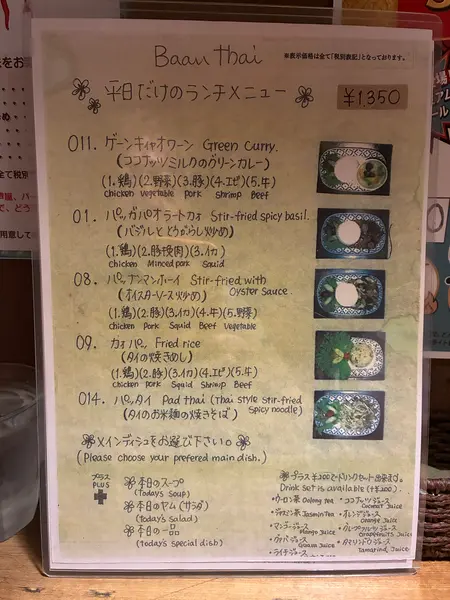 Baan thai
※表示価格は全て「税別表記」となっております。
平日だけのランチメニュー
¥1,350
011. ゲーンキャオワーン Green Curry.
(ココナッツミルクのグリーンカレー)
(1.鶏)(2.野菜)(3.豚)(4.エビ)(5.牛)
chicken vegetable pork shrimp Beef
01. パッガパオラートカオ Stir-fried spicy basil.
(バジルととうがらし炒め)
(1.鶏)(2.豚挽肉)(3.イカ)
chicken Minced pork Squid
08. パッナンマンホーイ Stir-fried with
(オイスターソース炒め) Oyster Sauce
(1.鶏)(2.豚)(3.イカ)(4.牛)(5.野菜)
chicken Pork Squid Beef Vegetable
09. カオパッ Fried rice
(タイの焼きめし)
(1.鶏)(2.豚)(3.イカ)(4.エビ)(5.牛)
chicken pork Squid Shrimp Beef
014. パッタイ Pad thai (Thai style stir-fried
(タイのお米麺の焼きそば) Spicy noodle)
メインディシュをお選び下さい。
(Please choose your prefered main dish.)
プラス
PLUS
本日のスープ
(today's soup)
本日のヤム(サラダ)
(today's salad)
本日の一品
(today's special dish)
プラス¥200でドリンクセット出来ます。
Drink set is available (+¥200).
・ウーロン茶 Oolong tea
・ジャスミン茶 Jasmin Tea
・マンゴージュース
Mango Juice
・グァバジュース
Guava Juice
・ライチジュース
・ココナッツジュース
Coconut Juice
・オレンジジュース
Orange Juice
・グレープフルーツジュース
Grapefruits Juice
・タマリンドジュース
Tamarind Juice